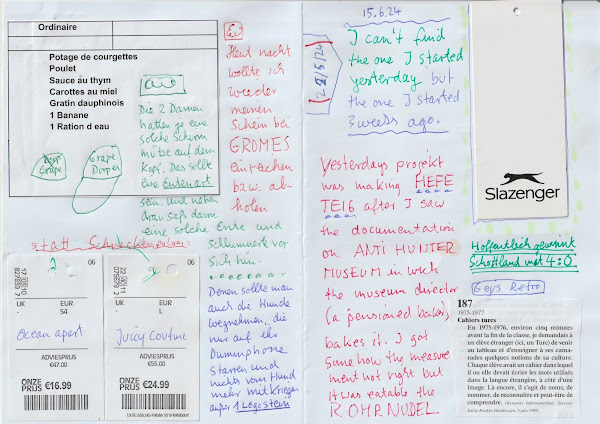 Ordinaire
Potage de courgettes
Poulet
Sauce au thym
Carottes au miel
Gratin dauphinois
1 Banane
1 Ration d eau
Grape
Grape
Die 2 Damen
hatten je eine
solche Schirm
mütze auf dem
Kopf. Das sollte
eine Entenart
sein. Und neben
dran saß dann
eine solche Ente und
schlummert vor
sich hin.
Denen sollte man
auch die Hunde
wegnehmen, die
nur auf ihr
Dummphone
starren und
nichts vom Hund
mehr mitkriegen
außer 1 Logo stein
Heut nacht
wollte ich
wieder
meinen
Schein bei
GROMES
einreichen
bzw. ab
holen
statt Schneckenpulver:
2
06
UK
EUR
54
Ocean apart
ADVIESPRIJS
€47.00
ONZE
PRIJS
€16.99
06
UK
EUR
L
Juicy Couture
ADVIESPRIJS
€55.00
ONZE
PRIJS
€24.99
15.6.24
I can't find
the one I started
yesterday but
the one I started
3 weeks ago.
Yesterdays projekt
was making HEFE
TEIG after I saw
the documentation
on ANTI HUNTER
MUSEUM in wich
the museum director
(a pensioned baker)
bakes it. I got
some how the measure
ment not right but
it was eatable the
ROHRNUDEL
Slazenger
Hoffentlich gewinnt
Schottland mit 4:0
Geys Retro
187
1975-1977
Cahiers turcs
En 1975-1976, environ cinq minutes
avant la fin de la classe, je demandais à
un élève étranger (ici, un Turc) de venir
au tableau et d'enseigner à ses cama-
rades quelques notions de sa culture.
Chaque élève avait un cahier dans lequel
il ou elle devait écrire les mots utilisés
dans la langue étrangère, à côté d'une
image. Là encore, il s'agit de noms, de
nommer, de reconnaître et peut-être de
comprendre.